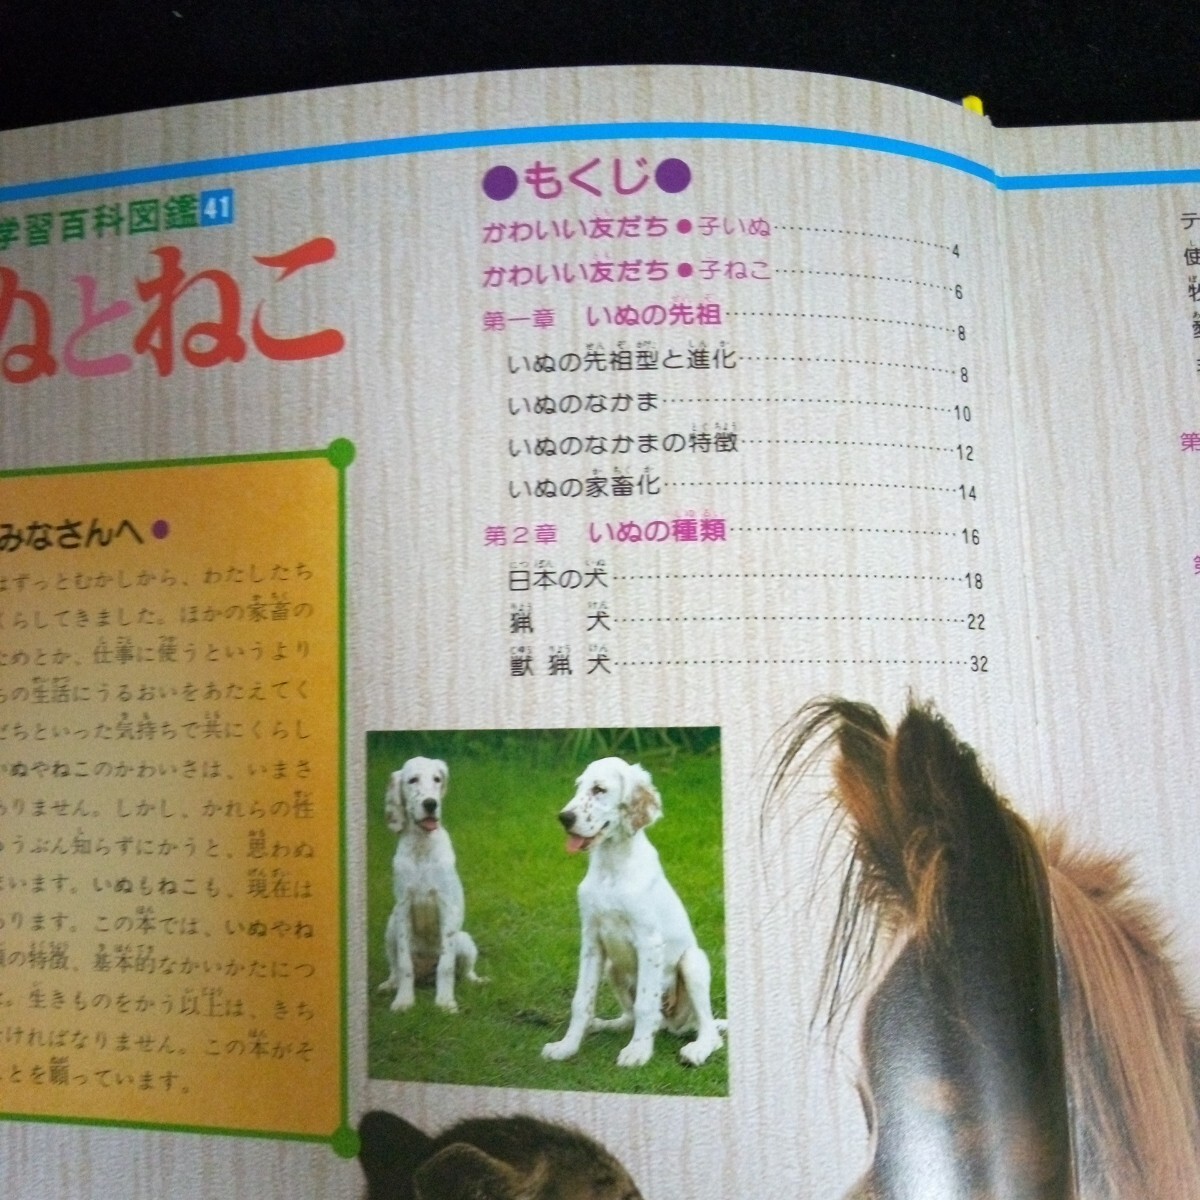 学習百科図鑑41
ぬとねこ
みなさんへ●
はずっとむかしから、わたしたち
くらしてきました。ほかの家畜の
ためとか、仕事に使うというより
らの生活にうるおいをあたえてく
だちといった気持ちで共にくらし
いぬやねこのかわいさは、いまさ
ありません。しかし、かれらの性
ゅうぶん知らずにかうと、思わぬ
まいます。いぬもねこも、現在は
あります。この本では、いぬやね
類の特徴、基本的なかいかたにつ
た。生きものをかう以上は、きち
なければなりません。この本がそ
ことを願っています。
●もくじ●
かわいい友だち●子いぬ……4
かわいい友だち●子ねこ……6
第一章 いぬの先祖……8
いぬの先祖型と進化……8
いぬのなかま……10
いぬのなかまの特徴……12
いぬの家畜化……14
第2章 いぬの種類……16
日本の犬……18
猟犬……22
獣猟犬……32
テ
使
牧
第